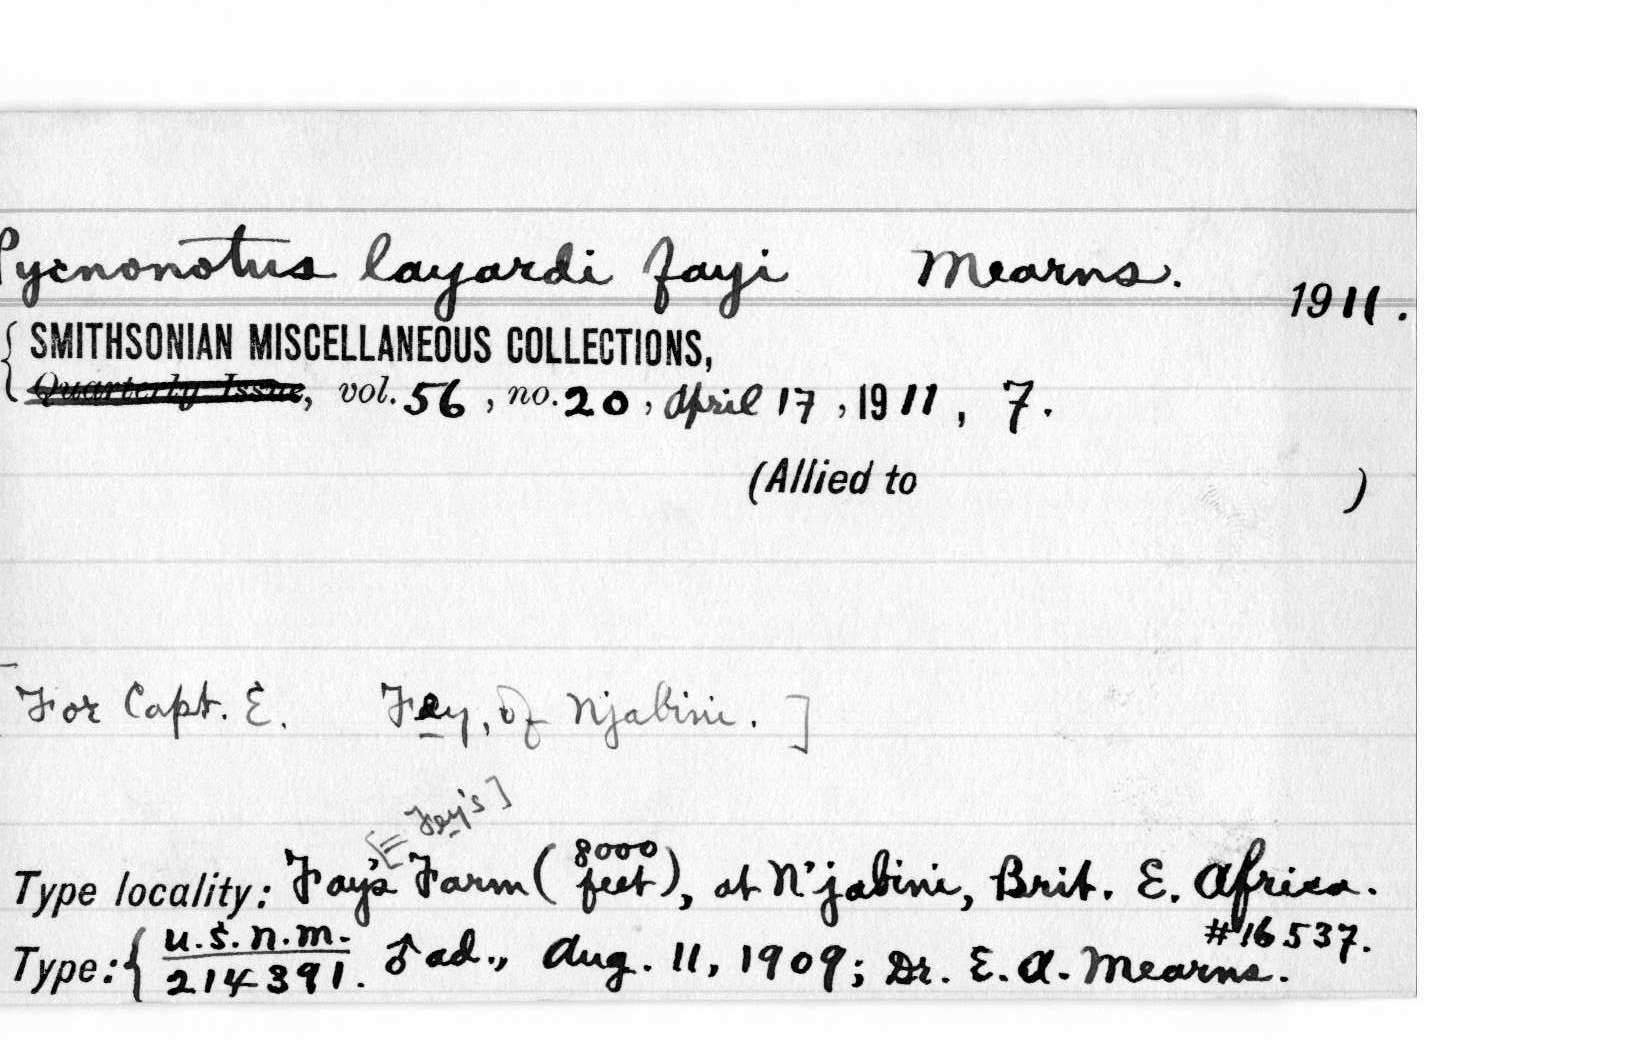 Pycnonotus layardi fayi Mearns. 1911.
SMITHSONIAN MISCELLANEOUS COLLECTIONS,
Quarterly Issue, vol. 56, no. 20, April 17, 1911, 7.
(Allied to )
For Capt. E. Fey, of Njabini.]
[= Fey's]
Type locality: Fay's Farm (8000 feet), at N'jabini, Brit. E. Africa.
#16537.
Type: { U.S.N.M. 214391. ♂ ad., Aug. 11, 1909; Dr. E. A. Mearns.